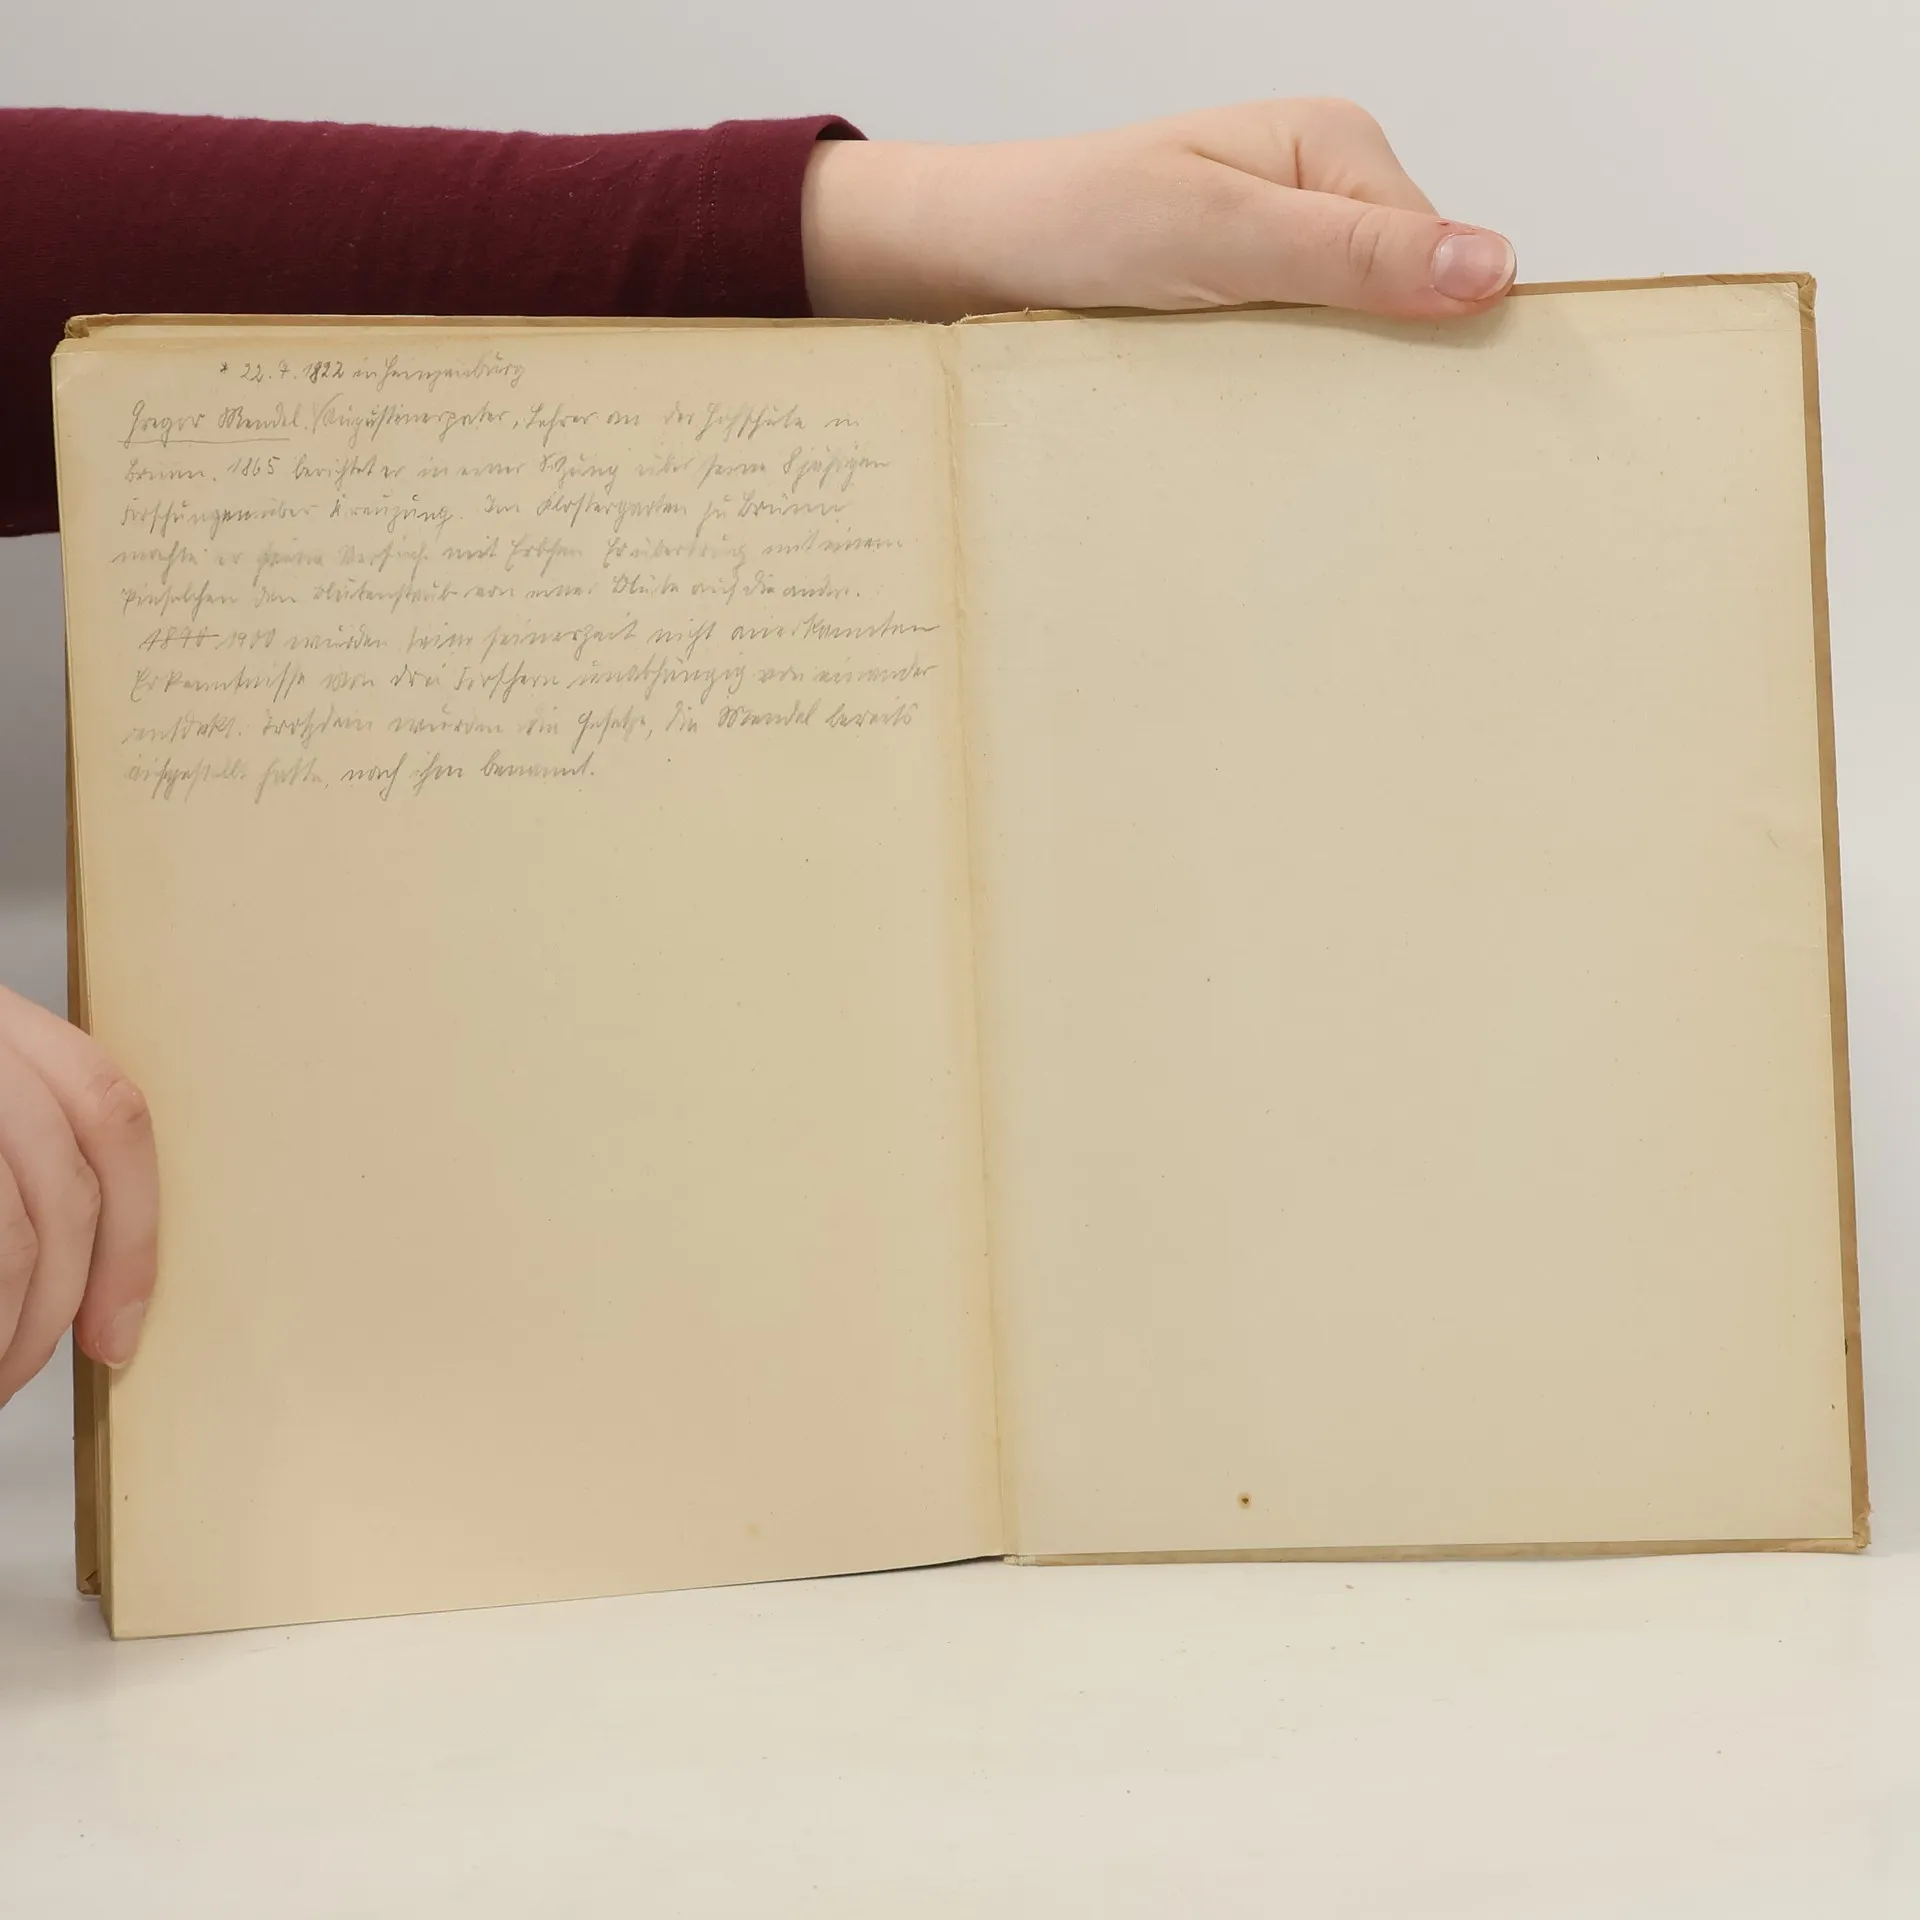 * 22. 7. 1822 in Heinzenburg
Gregor Mendel. Augustinerpater, Lehrer an der Hohschule in
Brünn. 1865 berichtet er in einer Sitzung über seine 8 jährigen
Forschungen über Kreuzung. Im Klostergarten zu Brünn
machte er seine Versuche mit Erbsen Er übertrug mit einem
Pinselchen den Blütenstaub von einer Blüte auf die andre.
1870 1900 wurden seine seinerzeit nicht anerkannten
Erkenntnisse von drei Forschern unabhängig von einander
entdekt. Trotzdem wurden die Gesetze, die Mendel bereits
aufgestellt hatte, nach ihm benannt.